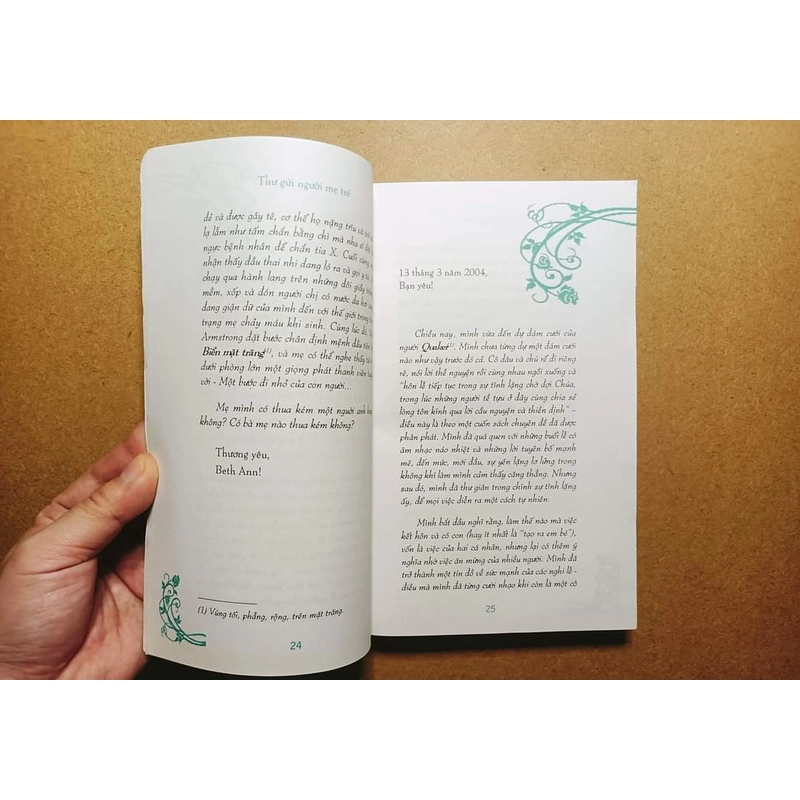 Thư gửi người mẹ trẻ
dẻ và được gây tê, cơ thể họ nặng trĩu và
lạ lẫm như tấm chắn bằng chì mà nha sĩ đặt
ngực bệnh nhân để chắn tia X. Cuối cùng,
nhận thấy đầu thai nhi đang ló ra và gọi y tá
chạy qua hành lang trên những đôi giày
mềm, xốp và đón người chị có nước da
đang giận dữ của mình đến với thế giới trong
trạng mẹ chảy máu khi sinh. Cùng lúc đó,
Armstrong đặt bước chân định mệnh đầu tiên
Biển mặt trăng(1), và mẹ có thể nghe thấy từ
dưới phòng lớn một giọng phát thanh viên
vời - Một bước đi nhỏ của con người...
Mẹ mình có thua kém một người anh
không? Có bà mẹ nào thua kém không?
Thương yêu,
Beth Ann!
(1) Vùng tối, phẳng, rộng, trên mặt trăng.
24
13 tháng 3 năm 2004,
Bạn yêu!
Chiều nay, mình vừa đến dự đám cưới của
người Quaker(1). Mình chưa từng dự một đám cưới
nào như vậy trước đó cả. Cô dâu và chú rể đi riêng
rẽ, nói lời thề nguyện rồi cùng nhau ngồi xuống và
“hôn lễ tiếp tục trong sự tĩnh lặng chờ đợi Chúa,
trong lúc những người tề tựu ở đây cùng chia sẻ
lòng tôn kính qua lời cầu nguyện và thiền định” –
điều này là theo một cuốn sách chuyên đề đã được
phân phát. Mình đã quá quen với những buổi lễ có
âm nhạc náo nhiệt và những lời tuyên bố mạnh
mẽ, đến mức, mới đầu, sự yên lặng lơ lửng trong
không khí làm mình cảm thấy căng thẳng. Nhưng
sau đó, mình đã thư giãn trong chính sự tĩnh lặng
ấy, để mọi việc diễn ra một cách tự nhiên.
Mình bắt đầu nghĩ rằng, làm thế nào mà việc
kết hôn và có con (hay ít nhất là “tạo ra em bé”),
vốn là việc của hai cá nhân, nhưng lại có thêm ý
nghĩa nhờ việc ăn mừng của nhiều người. Mình đã
trở thành một tín đồ về sức mạnh của các nghi lễ -
điều mà mình đã từng cười nhạo khi còn là một cô
25